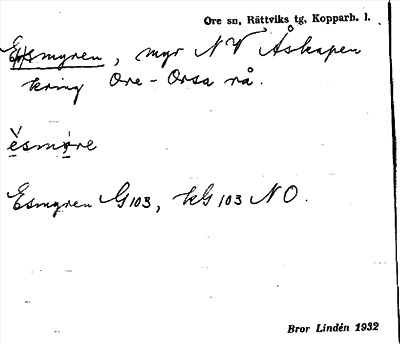 Ore sn, Rättviks tg, Kopparb. l.
Esmyren, myr NV Åskapen
kring Ore-Orsa rå.
èsmỿre
Esmyren G103, kG 103 NO.
Bror Lindén 1932